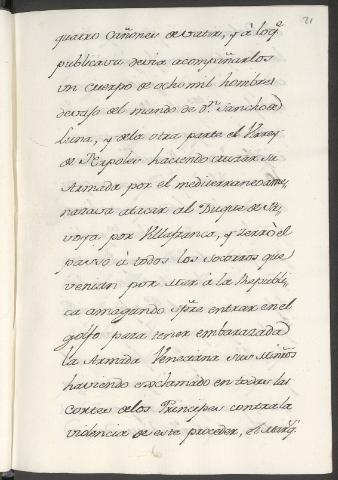 21
quatro Cañones de vatir, y à loq.e
publicava devia acompañarlos
un cuerpo de ocho mil hombres
devajo del mando de D.n Sancho de
Luna, y de la otra parte el Virrey
de Napoles haciendo cruzar su
Armada por el mediterraneo ame,
nazava atacar al Duque de Sa,
voya por Villafranca, y Zerrò el
passo à todos los socorros que
venian por Mar à la Republi,
ca amagando spre entrar en el
golfo para tener embarazada
la Armada Veneciana sus Minros
haviendo exclamado en todas las
Cortes de los Principes contra la
violencia de este proceder, el Marq.